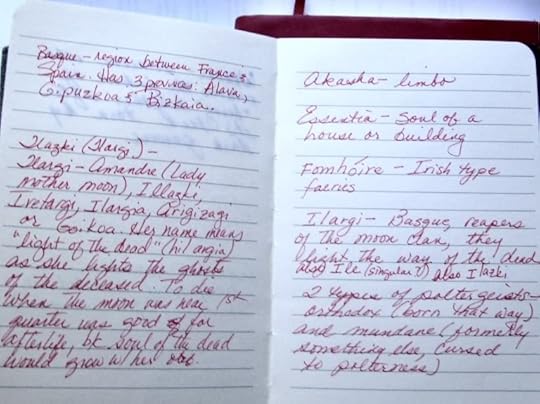 Basque - region between France &
Spain. Has 3 provinces: Alava,
Gipuzkoa & Bizkaia.
Ilazki (Ilargi) -
Ilargi - Amandre (Lady
mother moon), Illazki,
Iretargi, Ilargia, Argizagi
or Goikoa. Her name means
"light of the dead" (hil argia)
as she lights the ghosts
of the deceased. To die
when the moon was near 1st
quarter was good for
afterlife, bc soul of the dead
would grow w/ her
Akasha - limbo
Essentia - Soul of a
house or building
Fomhóire - Irish type
faeries
Ilargi - Basque, reapers
of the moon clan, they
light the way of the dead
also Ile (singular?) also Ilazki
2 types of poltergeists -
orthodox (born that way)
and mundane (formerly
something else, cursed
to polterness)